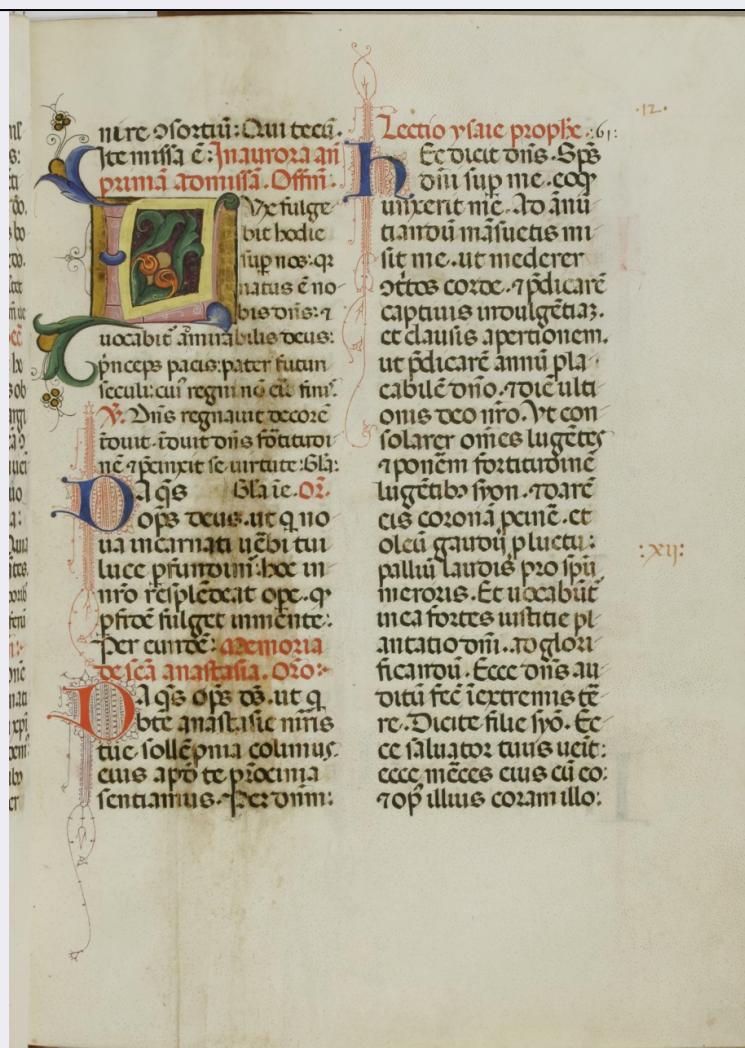 nire ɔsortiũ: Qui tecũ.
Ite missa ē: In aurora añ
primã ad missã. Offm̄.
Ux fulge
bit hodie
sup nos: qr
natus ē no
bis dñs: ⁊
uocabit̃ amirabilis deus:
p̃nceps pacis: pater futuri
seculi: cui' regni nō erit finis.
V. Dñs regnauit decorē
ĩduit. ĩduit dñs fōtitudi
nē ⁊ p̃cinxit se uirtute: Gl̃a:
Da q̄s Gl̃a ĩe. Or̃.
op̄s deus. ut q̇ no
ua incarnati uẽbi tui
luce p̃fundim̃: hoc in
nr̃o resplēdeat ope. q̇
p fidē fulget in mente:
Per eundē: Memoria
de scã anastasia. Orõ:
Da q̄s op̄s d̄s. ut q̇
bt̃e anastasie mr̃is
tue sollēpnia colimus.
eius apd̃ te pr̃ocinia
sentiamus. Per dñm:
12.
Lectio ysaie prophe. 61:
hEc dicit dñs. Sp̄s
dñi sup me. eo q̇
unxerit me. Ad ãnũ
tiandũ mãsuetis mi
sit me. ut mederer
ɔt̃tos corde. ⁊ p̃dicarē
captiuis indulgētiaꝫ.
et clausis apertionem.
ut p̃dicarē annũ pla
cabilē dño. ⁊ diē ulti
onis deo nr̃o. Vt con
solarer om̃es lugētes
⁊ ponẽm fortitudinē
lugētibꝫ syon. ⁊ darē
eis coronã p cinẽ. et
oleũ gaudii p luctu:
palliũ laudis pro spũ
meroris. Et uocabũt̃
in ea fortes iustitie pl
antatio dñi. ad glori
ficandũ. Ecce dñs au
ditũ fec̃ ĩ extremis tẽ
re. Dicite filie syõ. Ec
ce saluator tuus ueit:
ecce mẽces eius cũ eo:
⁊ op̃ illius coram illo:
:xij: